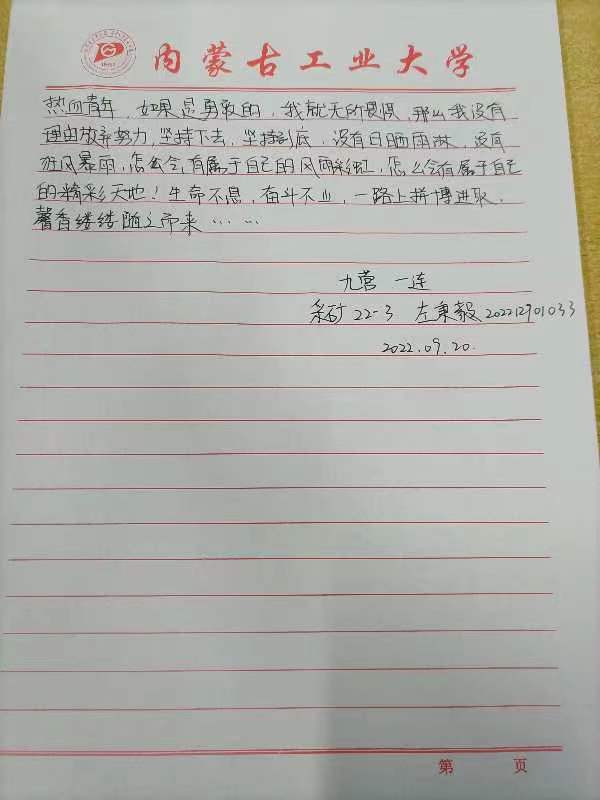 内蒙古工业大学
热血青年，如果是勇敢的，我就无所畏惧，那么我没有
理由放弃努力，坚持下去，坚持到底，没有日晒雨淋，没有
狂风暴雨，怎么会有属于自己的风雨彩虹，怎么会有属于自己
的精彩天地！生命不息，奋斗不止，一路上拼博进取，
馨香缕缕随之而来……
九营 一连
采矿22-3 左秉毅 202212901033
2022.09.20.
第 页